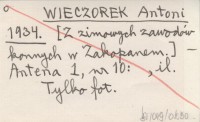 WIECZOREK Antoni
1934. [Z zimowych zawodów
konnych w Zakopanem.] -
Antena 1, nr 10: , il.
Tylko fot.